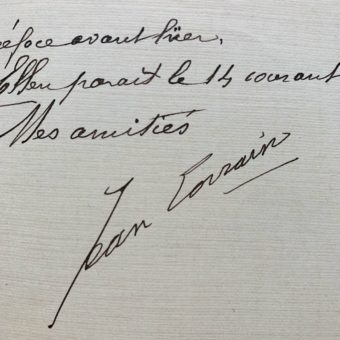 préface avant hier.
Ellen parait le 14 courant
Mes amitiés
Jean Lorrain